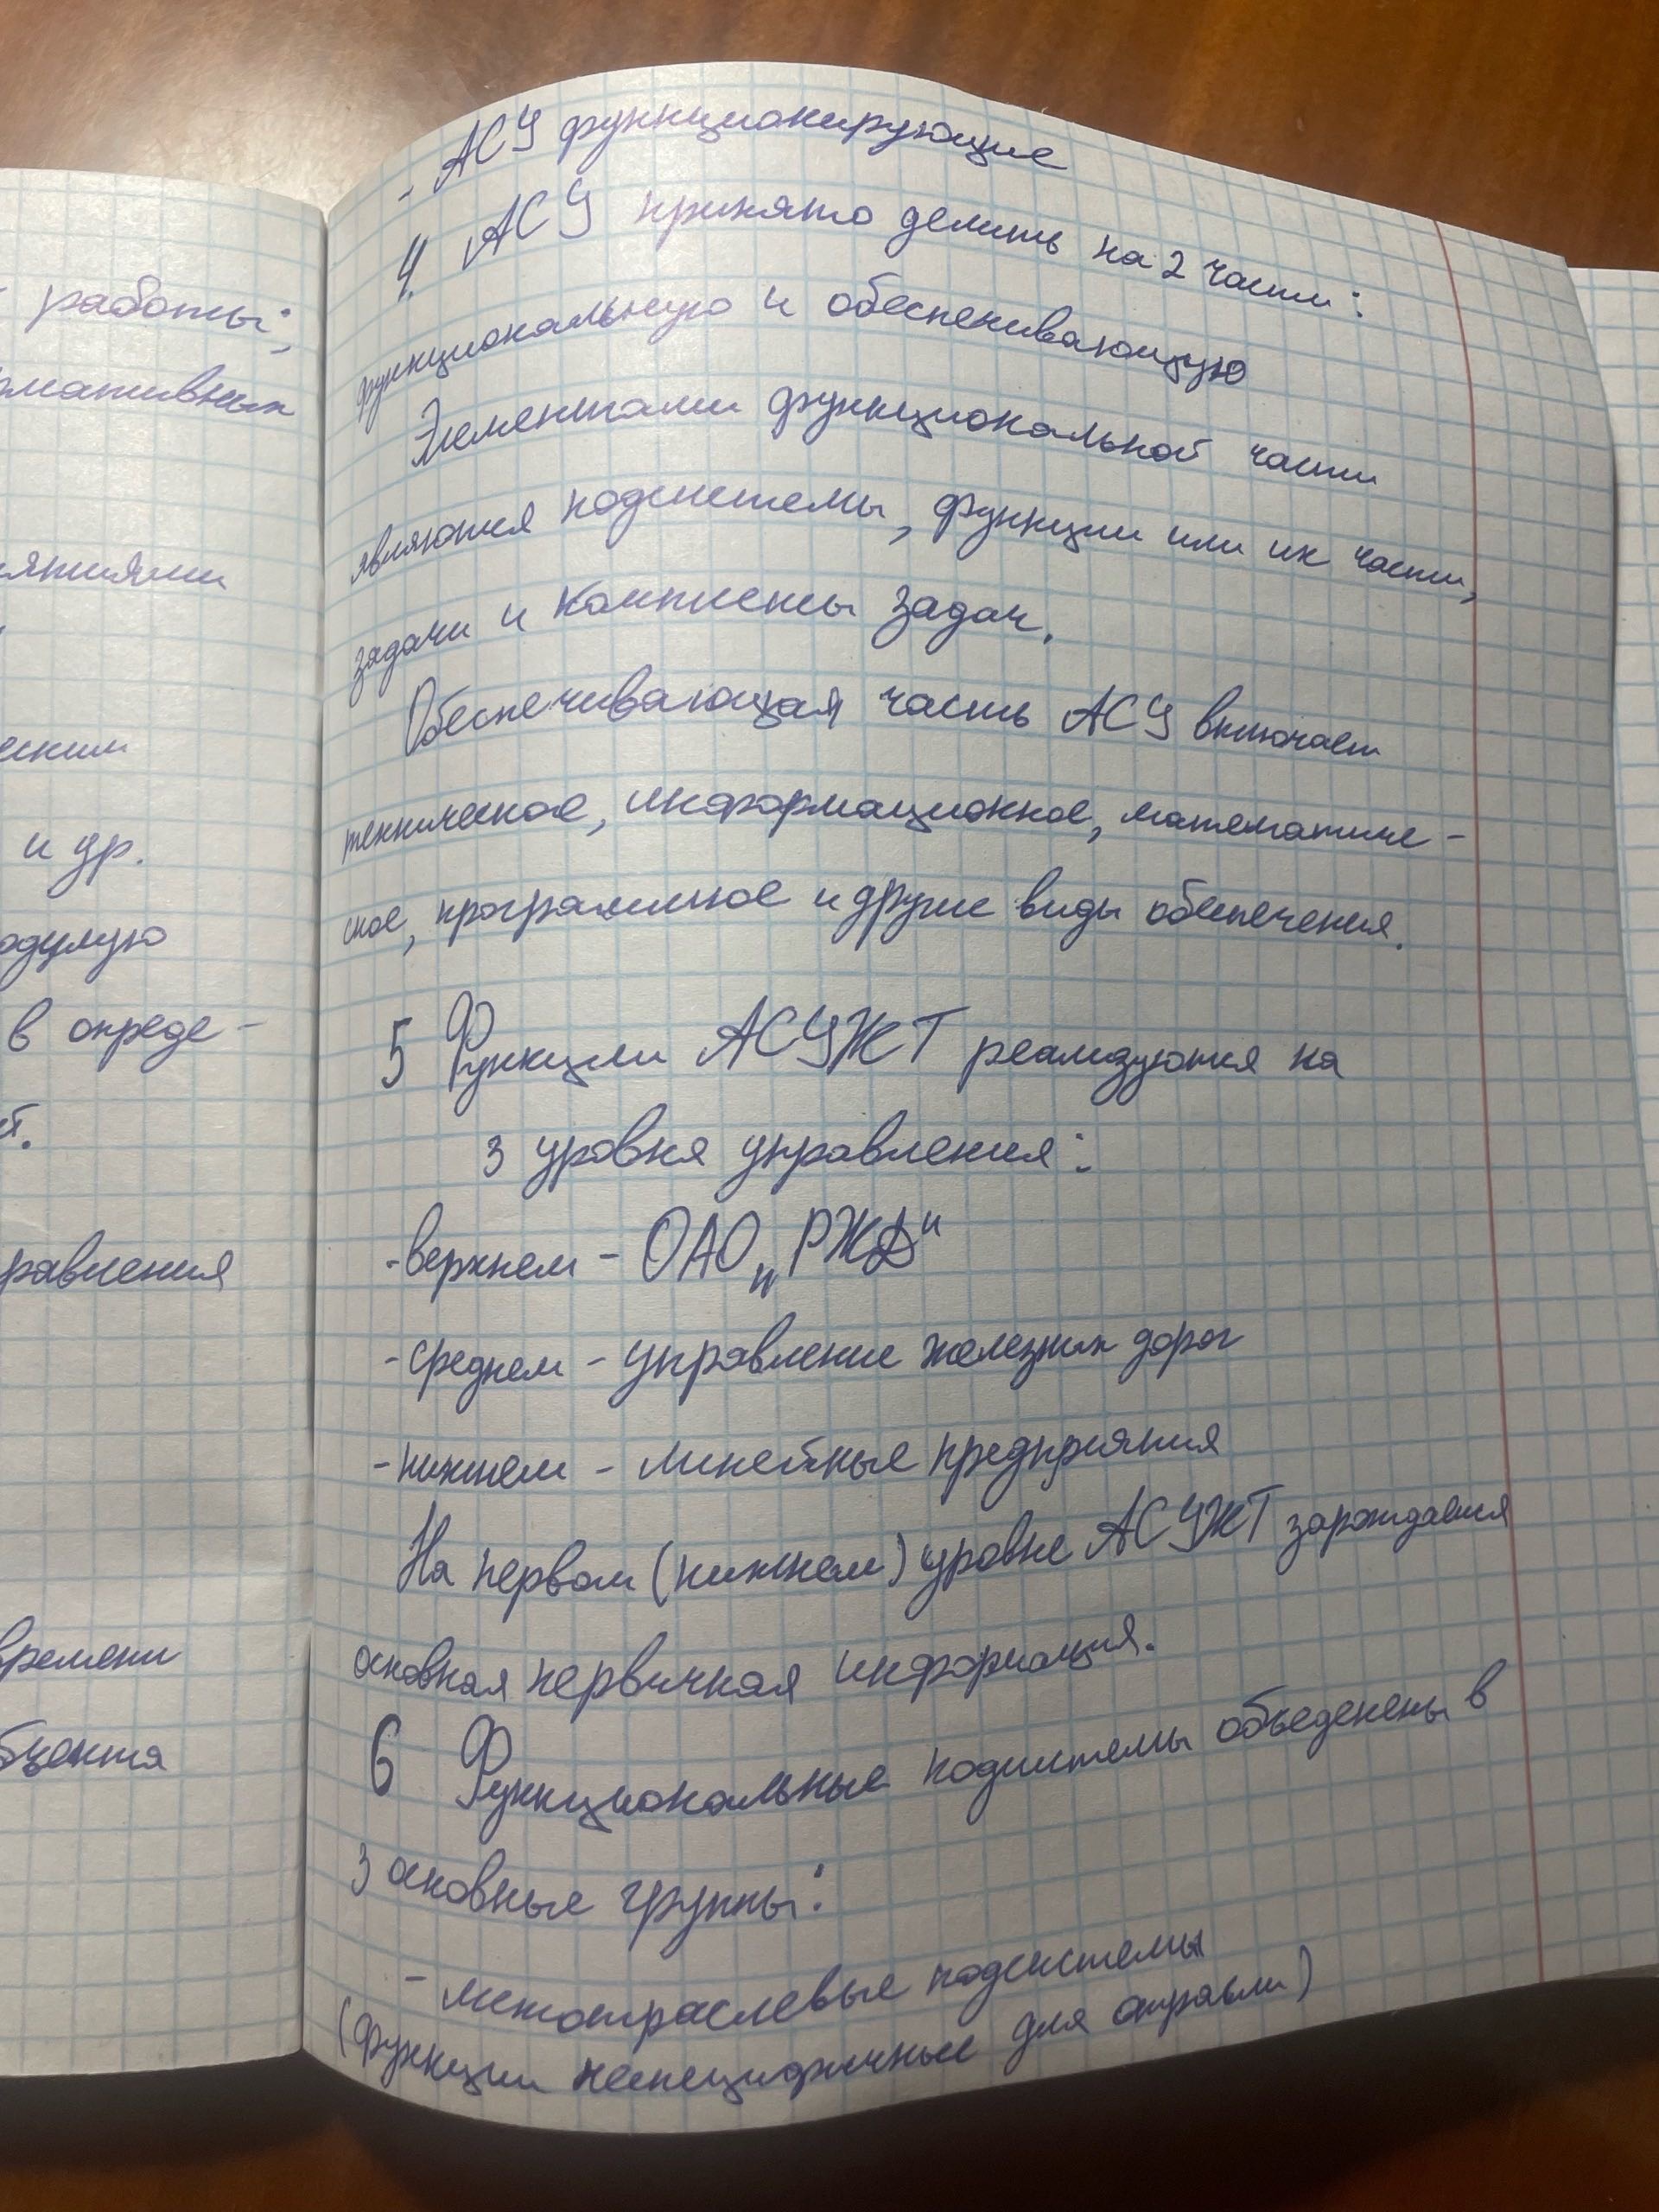 работы;
рмативных
ятиями
еским
и др.
одулую
в опреде-
й.
равления
времени
бъекта
- АСУ функционирующие
4. АСУ принято делить на 2 части:
функциональную и обеспечивающую
Элементами функциональной части
являются подсистемы, функции или их части,
задачи и комплексы задач.
Обеспечивающая часть АСУ включает
техническое, информационное, математиче-
ское, программное и другие виды обеспечения.
5 Функции АСУЖТ реализуются на
3 уровня управления:
-верхнем - ОАО „РЖД"
-среднем - управление железных дорог
-нижнем - линейные предприятия
На первом (нижнем) уровне АСУЖТ зарождается
основная первичная информация.
6 Функциональные подсистемы объеденены в
3 основные группы:
- межотраслевые подсистемы
(функции неспецифичные для отрасли)